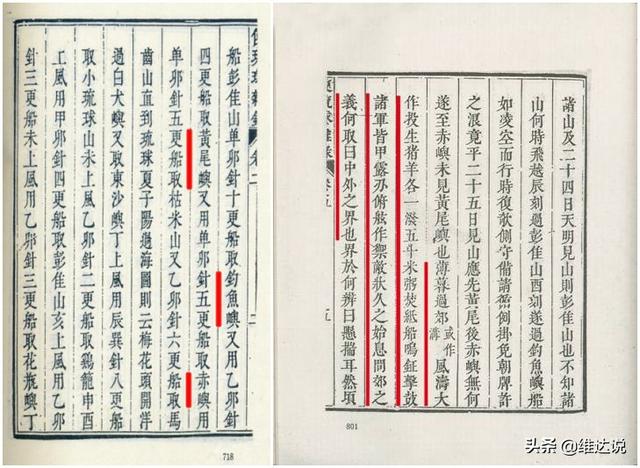 卷二
二
船彭佳山单卯針十更船取釣魚嶼又用乙卯針
四更船取黃尾嶼又用单卯針五更船取赤嶼用
单卯針五更船取枯米山又乙卯針六更船取馬
齒山直到琉球夏子陽過海圖則云梅花頭開洋
過白犬嶼又取東沙嶼丁上風用辰巽針八更船
取小琉球山未上風乙卯針二更船取鷄籠申酉
上風用甲卯針四更船取彭佳山亥上風用乙卯
針三更船未上風用乙卯針三更船取花瓶嶼丁
718
諸山及二十四日天明見山則彭佳山也不知諸
山何時飛越辰刻過彭佳山酉刻遂過釣魚嶼船
如凌空而行時復欹側守備請倒掛免朝牌許
之浪竟平二十五日見山應先黃尾後赤嶼無何
遂至赤嶼未見黃尾嶼也薄暮過郊或作溝風濤大
作投生猪羊各一潑五斗米粥焚紙船鳴鉦擊鼓
諸軍皆甲露刃俯舷作禦敵狀久之始息問郊之
義何取曰中外之界也界於何辨曰懸揣耳然頃
卷五
五
801
头条 @维达说